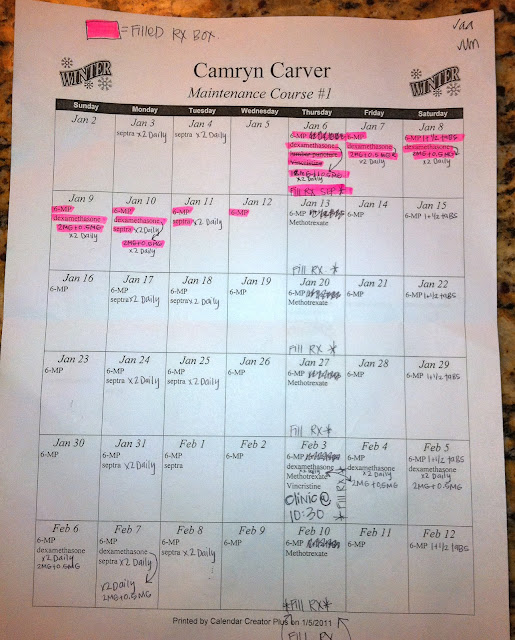 = FILLED RX BOX.
WINTER
WINTER
Camryn Carver
Maintenance Course #1
Sunday Monday Tuesday Wednesday Thursday Friday Saturday
Jan 2
Jan 3
septra x2 Daily
Jan 4
septra x2 Daily
Jan 5
Jan 6
6-MP
dexamethasone
lumbar puncture
vincristine
2MG+0.5MG
x2 Daily
Fill RX SEP *
Jan 7
6-MP
dexamethasone
2MG+0.5MG
x2 Daily
Jan 8
6-MP 1+1/2 tABS
dexamethasone
2MG+0.5MG
x2 Daily
Jan 9
6-MP
dexamethasone
2MG+0.5MG
x2 Daily
Jan 10
6-MP
dexamethasone
septra x2 Daily
2MG+0.5MG
x2 Daily
Jan 11
6-MP
septra x2 Daily
Jan 12
6-MP
Jan 13
6-MP
Methotrexate
Fill RX *
Jan 14
6-MP
Jan 15
6-MP 1+1/2 tABS
Jan 16
6-MP
Jan 17
6-MP
septra x2 Daily
Jan 18
6-MP
septra x2 Daily
Jan 19
6-MP
Jan 20
6-MP
Methotrexate
Fill RX *
Jan 21
6-MP
Jan 22
6-MP 1+1/2 tABS
Jan 23
6-MP
Jan 24
6-MP
septra x2 Daily
Jan 25
6-MP
septra x2 Daily
Jan 26
6-MP
Jan 27
6-MP
Methotrexate
Fill RX *
Jan 28
6-MP
Jan 29
6-MP 1+1/2 tABS
Jan 30
6-MP
Jan 31
6-MP
septra x2 Daily
Feb 1
6-MP
septra
Feb 2
6-MP
Feb 3
6-MP
dexamethasone
x2 Daily
Methotrexate
Vincristine
CliNiC@
10:30
*Fill RX*
Feb 4
6-MP
dexamethasone
x2 Daily
2MG+0.5MG
Feb 5
6-MP 1+1/2 tABS
dexamethasone
x2 Daily
2MG+0.5MG
Feb 6
6-MP
dexamethasone
x2 Daily
2MG+0.5MG
Feb 7
6-MP
dexamethasone
septra x2 Daily
x2 Daily
2MG+0.5MG
Feb 8
6-MP
septra x2 Daily
Feb 9
6-MP
Feb 10
6-MP
Methotrexate
*Fill RX*
Feb 11
6-MP
Feb 12
6-MP 1+1/2 tABS
Printed by Calendar Creator Plus on 1/5/2011
Fill RX